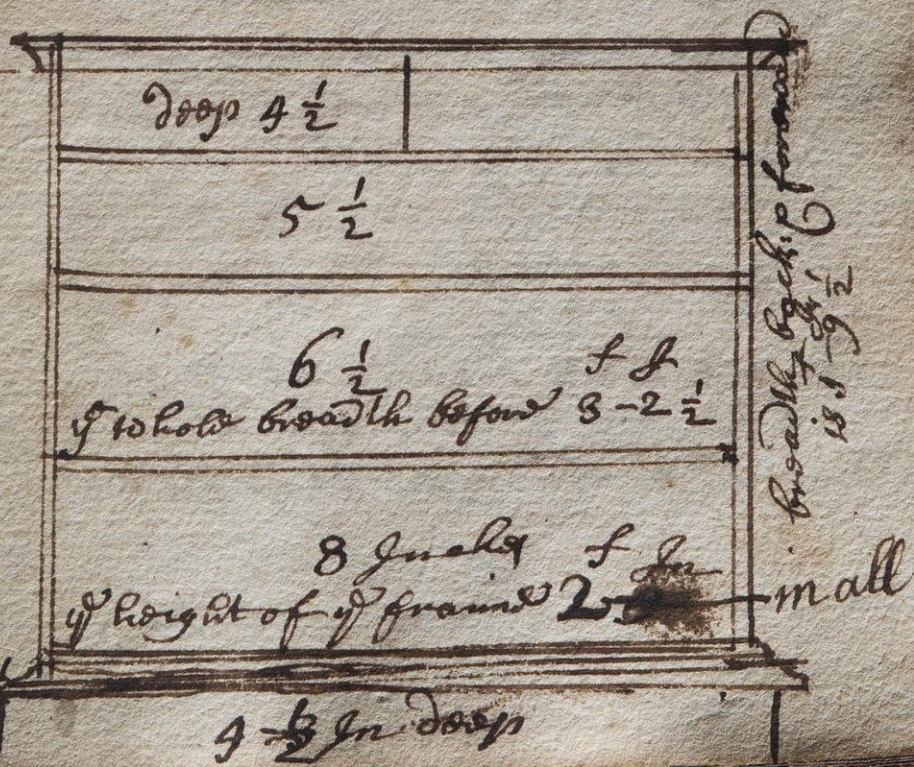 deep 4 1/2
5 1/2
6 1/2
f J
ye whole breadth before 3 - 2 1/2
8 Inches
f In
ye height of ye frame 2
in all
4 1/2 In deep
breadth back: forward
is 1 - 9 1/2